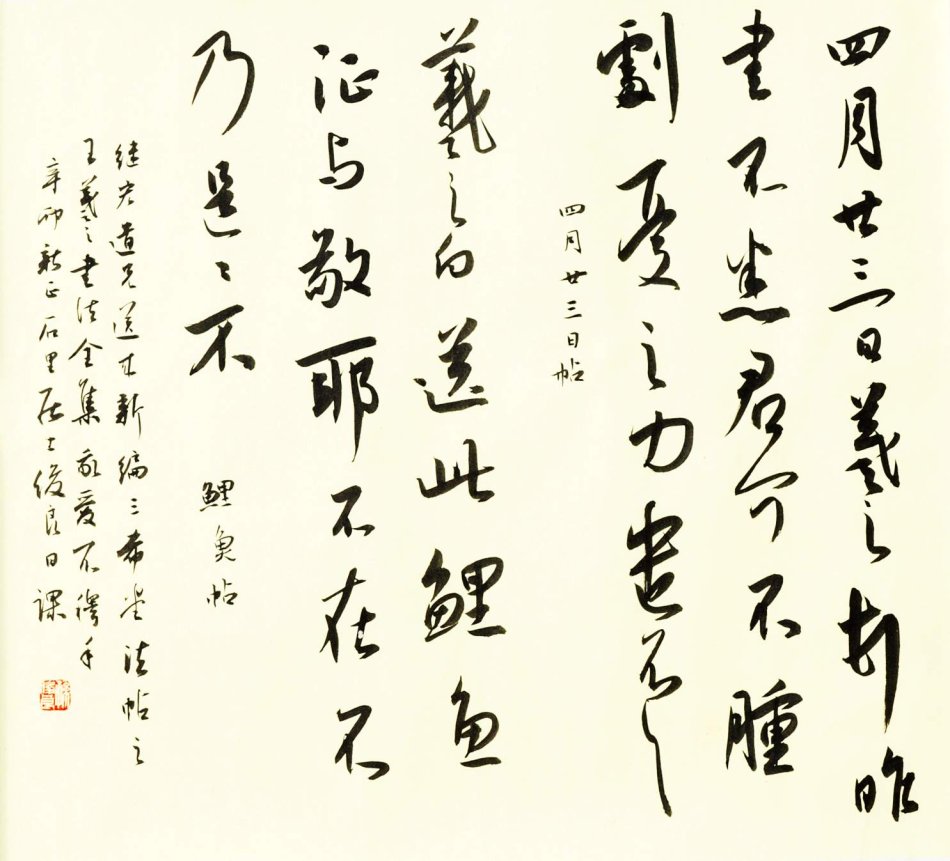 四月廿三日羲之頓首昨
書不悉君可不腫
劇憂之力遣不具
四月廿三日帖
羲之白送此鯉魚
征与敬耶不在不
乃是=不
鯉魚帖
继宏道兄送来新编三希堂法帖之
王羲之書法全集敬爱不釋手
辛卯新正石里居士俊良日課